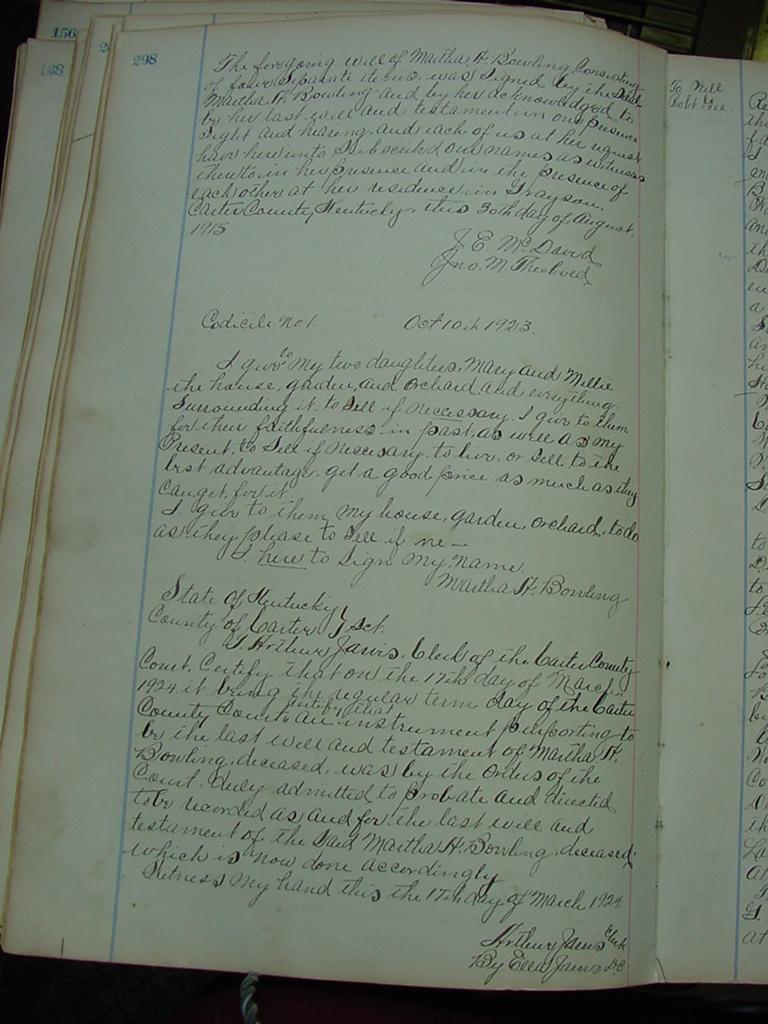 156
168
298
The forgoing will of Martha H. Bowling Consisting
of four Separate items was signed by the said
Martha H. Bowling and by her acknowledged to
be her last will and testament in our presence
sight and hearing, and each of us at her request
have here unto Subscribed our names as witnesses
thereto in her presence and in the presence of
each other at her residence in Grayson,
Carter County, Kentucky, this 30th day of August,
1915
J. E. McDavid
Jno. M. Theobald
Codicile No 1. Oct 10th 1923.
I give to My two daughters, Mary and Millie
the house, garden, and Orchard, and everything
Surrounding it, to Sell if neccessary. I give to them
for their faithfulness in past, as well as my
Present, to Sell if neccesary, to live, or Sell to the
best advantage. get a good price as much as they
can get, for it.
I give to them my house, garden, orchard, to do
as they please to Sell if ne—
I here to Sign my name.
Martha H. Bowling
State of Kentucky }
County of Carter } Sct.
I Arthur Jarvis, Clerk of the Carter County
Court, Certify that on the 17th day of March
1924 it being the regular term day of the Carter
County Court certify that An instrument purporting to
be the last will and testament of Martha H.
Bowling, deceased, was by the orders of the
Court, duly admitted to probate and directed
to be recorded as and for the last will and
testament of the said Martha H. Bowling, deceased,
which is now done accordingly
Witness my hand this the 17th day of March 1924.
Arthur Jarvis Clerk
By Ella Jarvis D.C.
To Will
Robt